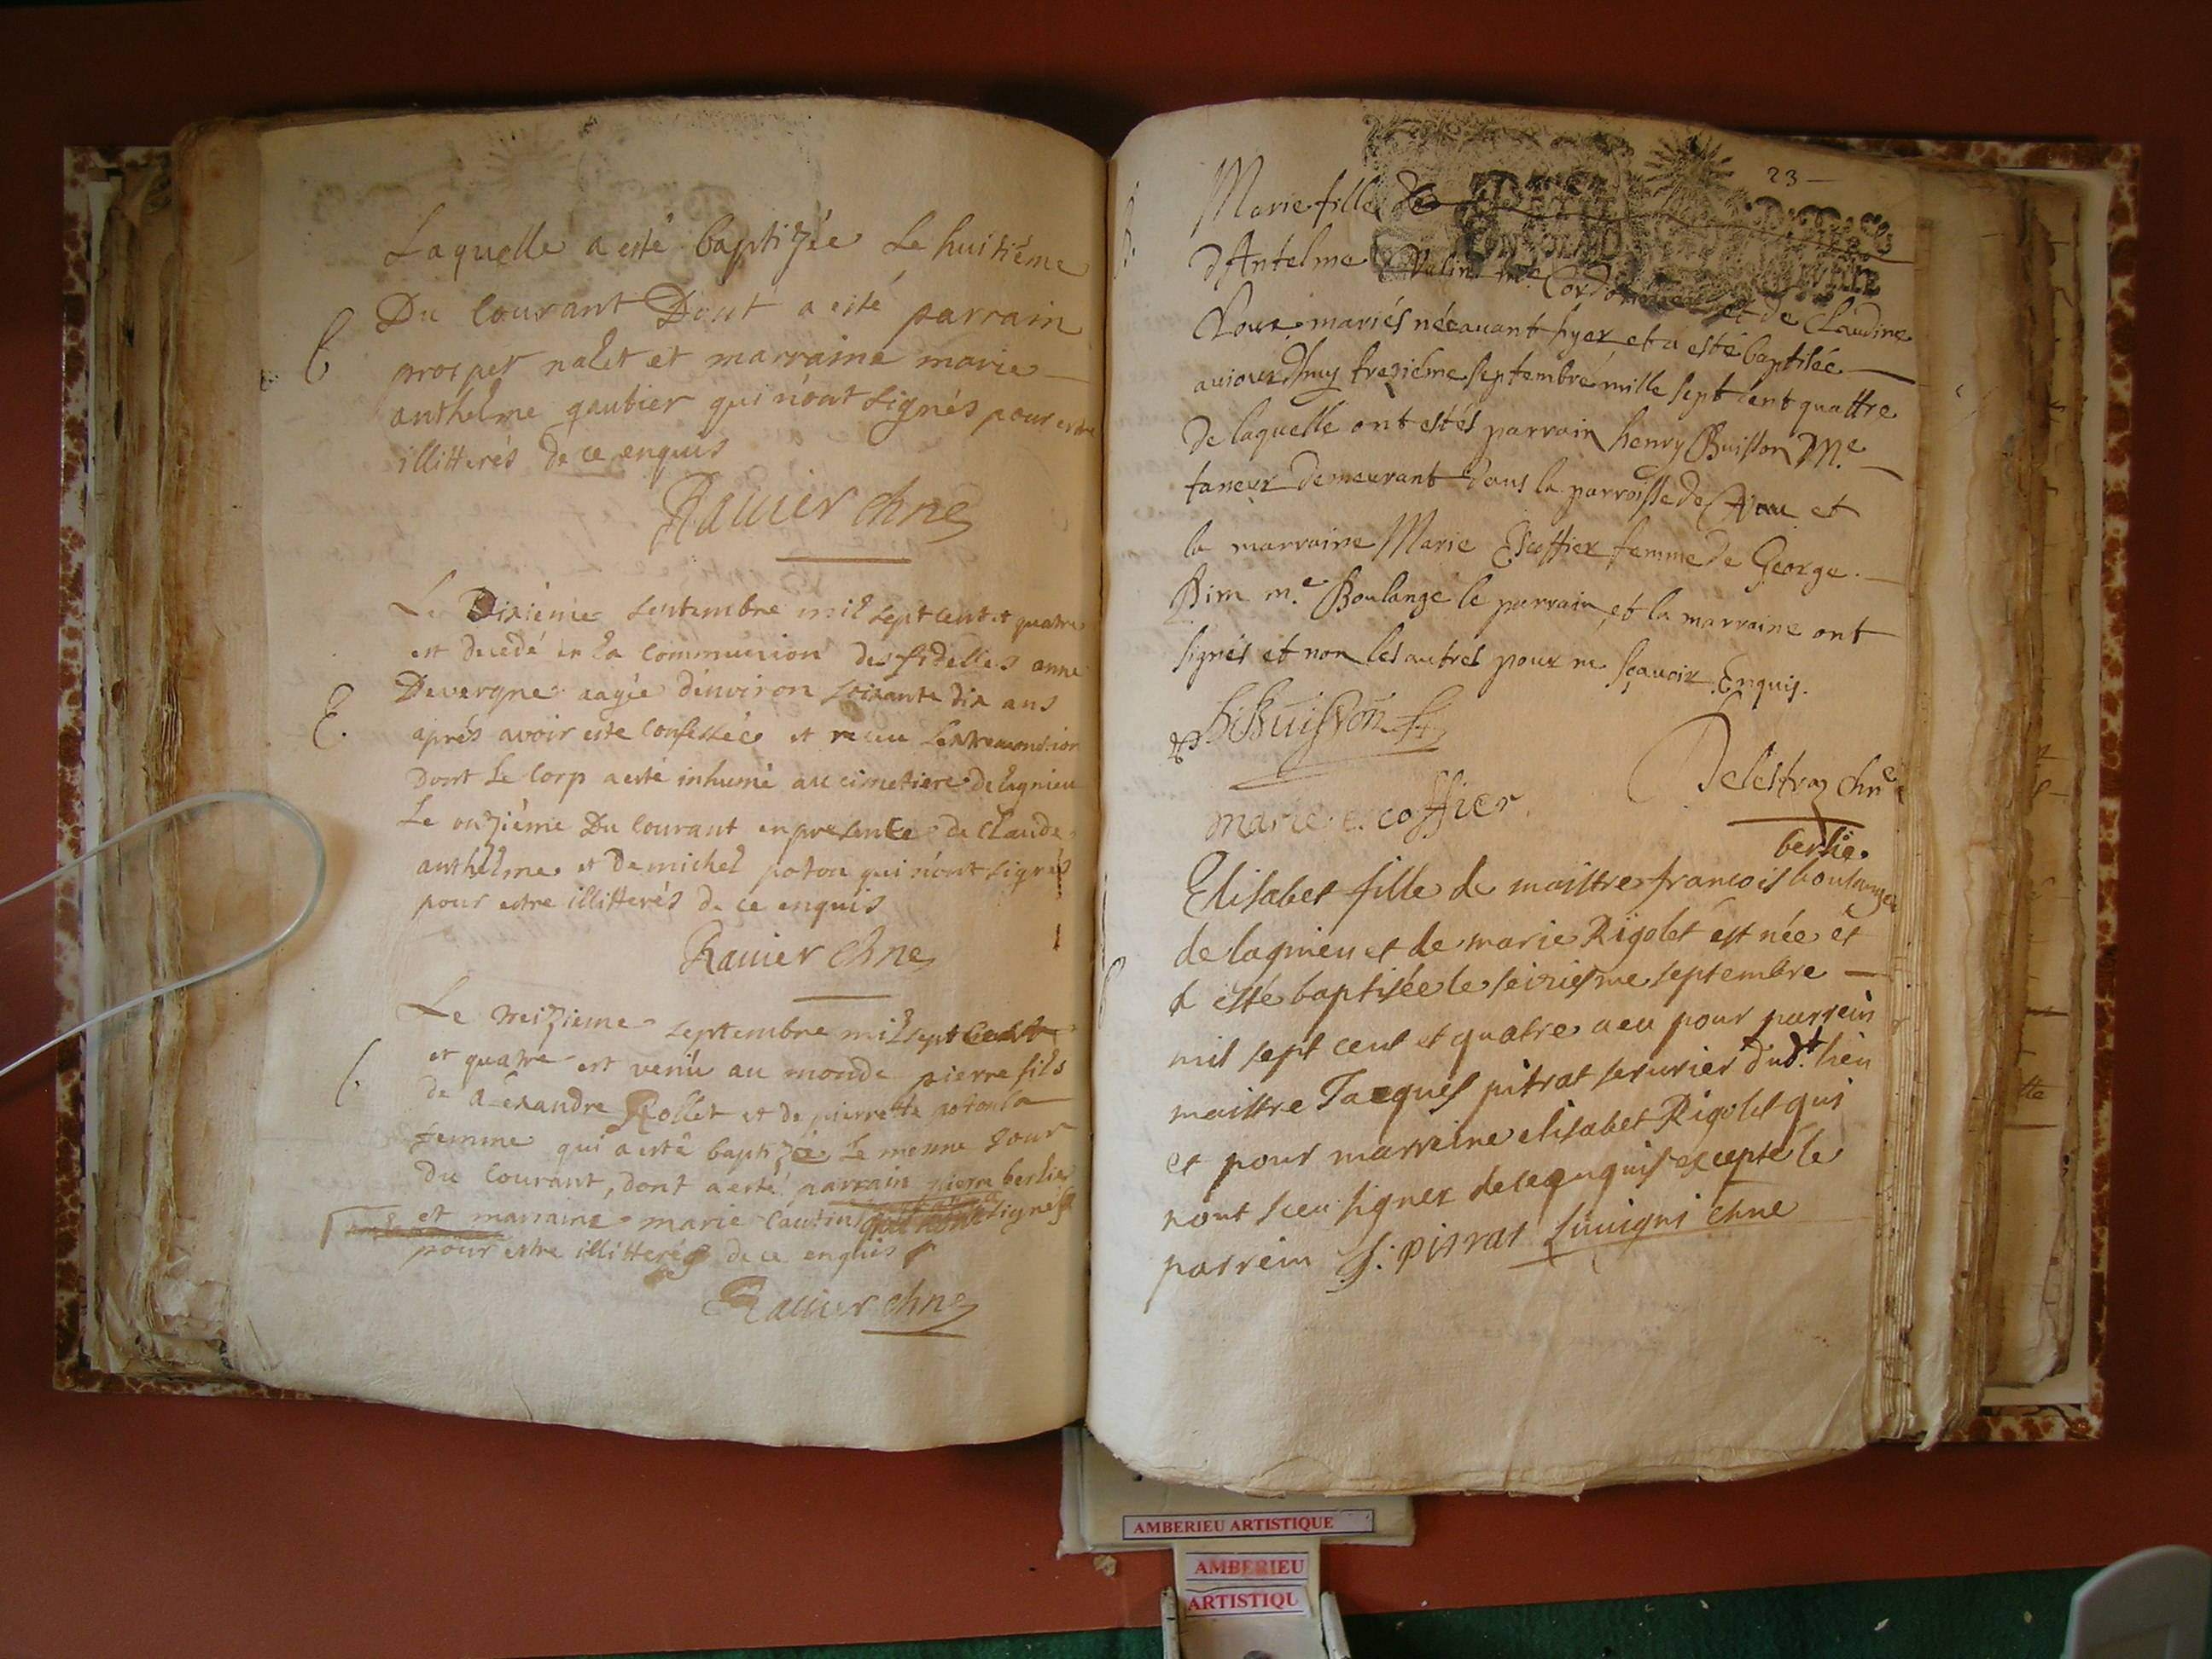 Laquelle a esté baptizée Le huitiéme
B Du Courant Dont a esté parrain
prosper nalet et marraine marie
anthelme gaubier qui n'ont signés pour estre
illitterés de ce enquis
Ravier chne
Le Dixiéme septembre mil sept cent et quatre
est decédé en La Communion des fidelles anne
E. Devergne aagée d'environ soixante dix ans
aprés avoir esté Confessée et receu Lextremonction
Dont Le Corp a esté inhumé au cimetiere de lagnieu
Le onziéme Du Courant en presence de Claude
anthelme et De michel poton qui n'ont signés
pour estre illitterés de ce enquis
Ravier chne
Le treizieme septembre mil sept cent
et quatre est venu au monde pierre fils
de alexandre Rollet et de pierrette poton sa
femme qui a esté baptizé Le mesme Jour
Du Courant, dont a esté parrain pierre berlier
et marraine marie qui n'ont signés
pour estre illitterés de ce enquis
Ravier chne
23
Marie fille De
d'Antelme me Cordonnier et de Claudine
mariés née avant hyer et a esté baptisée
aujourdhuy trezième septembre mille sept cent quattre
de laquelle ont estés parrain henry Buisson Me
taneur demeurant dans la parroisse de Vau et
la marraine Marie Escoffier femme de George
Bim me Boulangé le parrain et la marraine ont
signés et non les autres pour ne sçavoir Enquis.
h Buisson
Delestraz chne
marie escoffier
berlie
Elisabet fille de maistre francois boulanger
de lagnieu et de marie Rigolet est née et
a esté baptisée le seiziesme septembre
mil sept cent et quatre a eu pour parrein
maistre Jacques pitrat serurier dudt. lieu
et pour marreine elisabet Rigolet qui
nont sceu signer de ce enquis excepté le
parrein J: pitrat Livigni chne
AMBERIEU ARTISTIQUE
AMBERIEU
ARTISTIQU